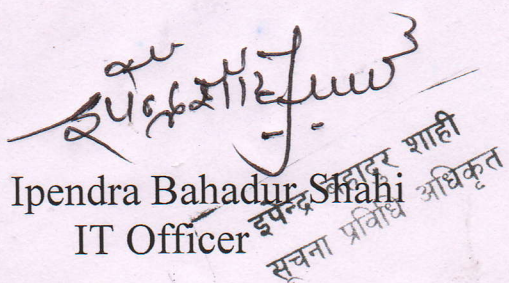 Ipendra Bahadur Shahi
IT Officer
इपेन्द्र बहादुर शाही
सूचना प्रविधि अधिकृत